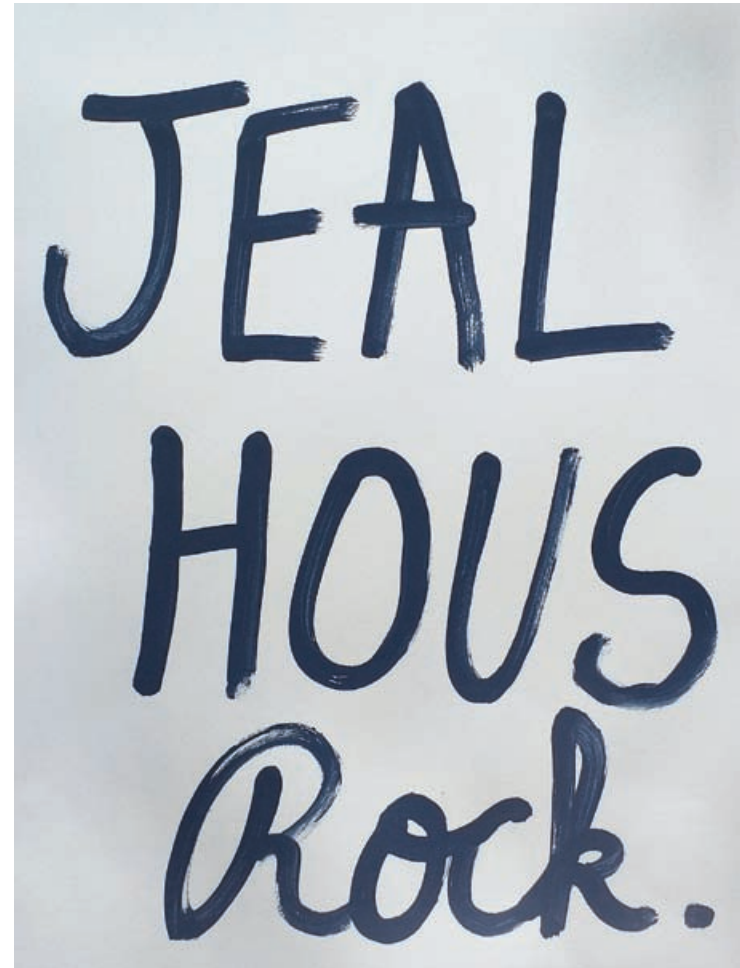 JEAL
HOUS
Rock.